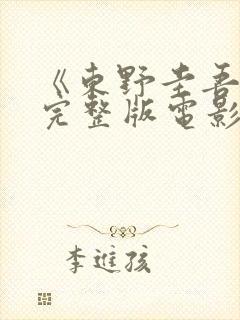 《東野圭吾
完整版電影
李進孩